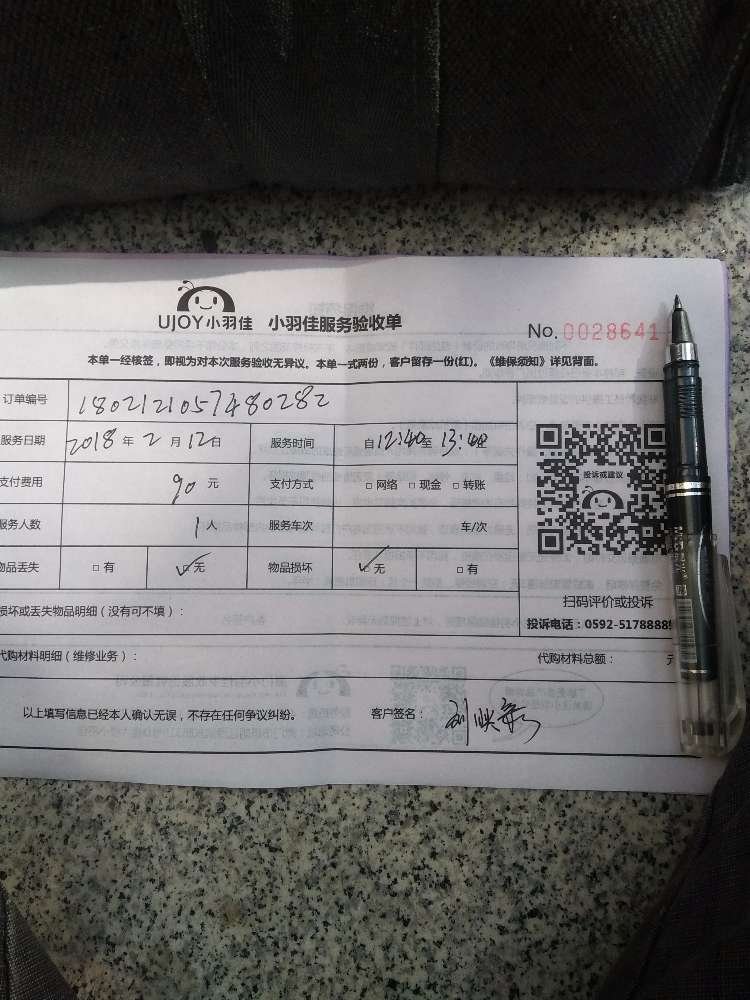 UJOY小羽佳 小羽佳服务验收单
No. 0028641
本单一经核签，即视为对本次服务验收无异议。本单一式两份，客户留存一份(红)。《维保须知》详见背面。
订单编号 180212105748 0282
服务日期 2018 年 2 月 12 日 服务时间 自 12:40 至 13:40
支付费用 90 元 支付方式 □ 网络 □ 现金 □ 转账
服务人数 1 人 服务车次 车/次
物品丢失 □ 有 ✓□ 无 物品损坏 ✓□ 无 □ 有
投诉或建议
扫码评价或投诉
投诉电话：0592-5178888
损坏或丢失物品明细（没有可不填）：
代购材料明细（维修业务）： 代购材料总额： 元
以上填写信息已经本人确认无误，不存在任何争议纠纷。 客户签名： 刘映